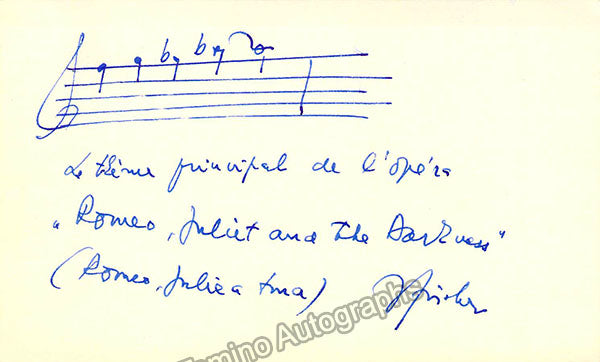 Le thème principal de l'opéra
„Romeo, Juliet and the Darkness"
(Romeo, Julie a tma) JFischer
Tamino Autographs